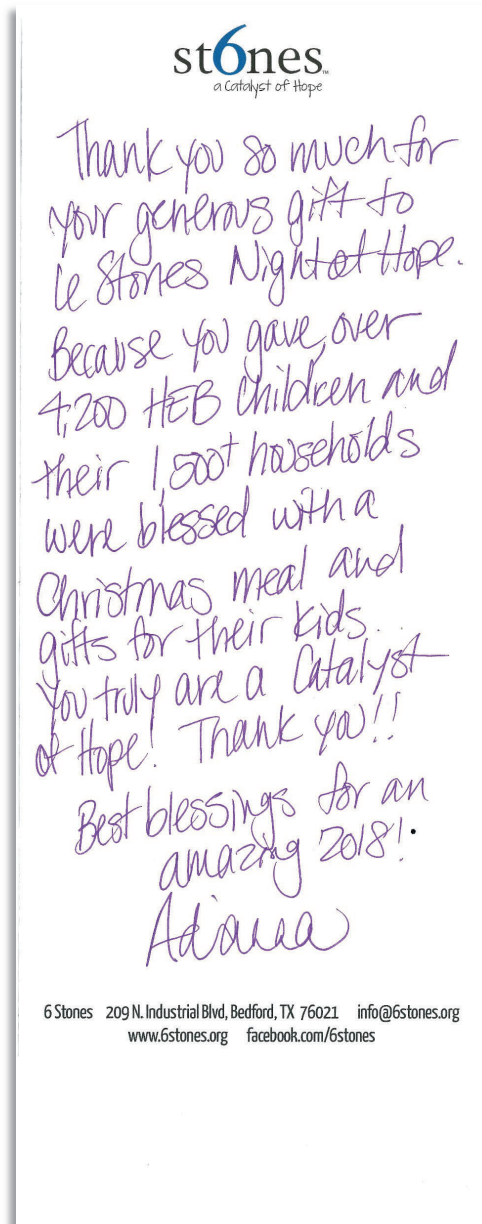 st6nes™
a Catalyst of Hope
Thank you so much for
your generous gift to
6 Stones Night of Hope.
Because you gave, over
4,200 HEB children and
their 1,500+ households
were blessed with a
Christmas meal and
gifts for their kids.
You truly are a Catalyst
of Hope! Thank you!!
Best blessings for an
amazing 2018!
6 Stones 209 N. Industrial Blvd, Bedford, TX 76021 info@6stones.org
www.6stones.org facebook.com/6stones